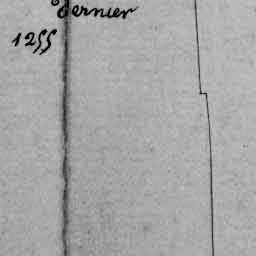 dernier
1255